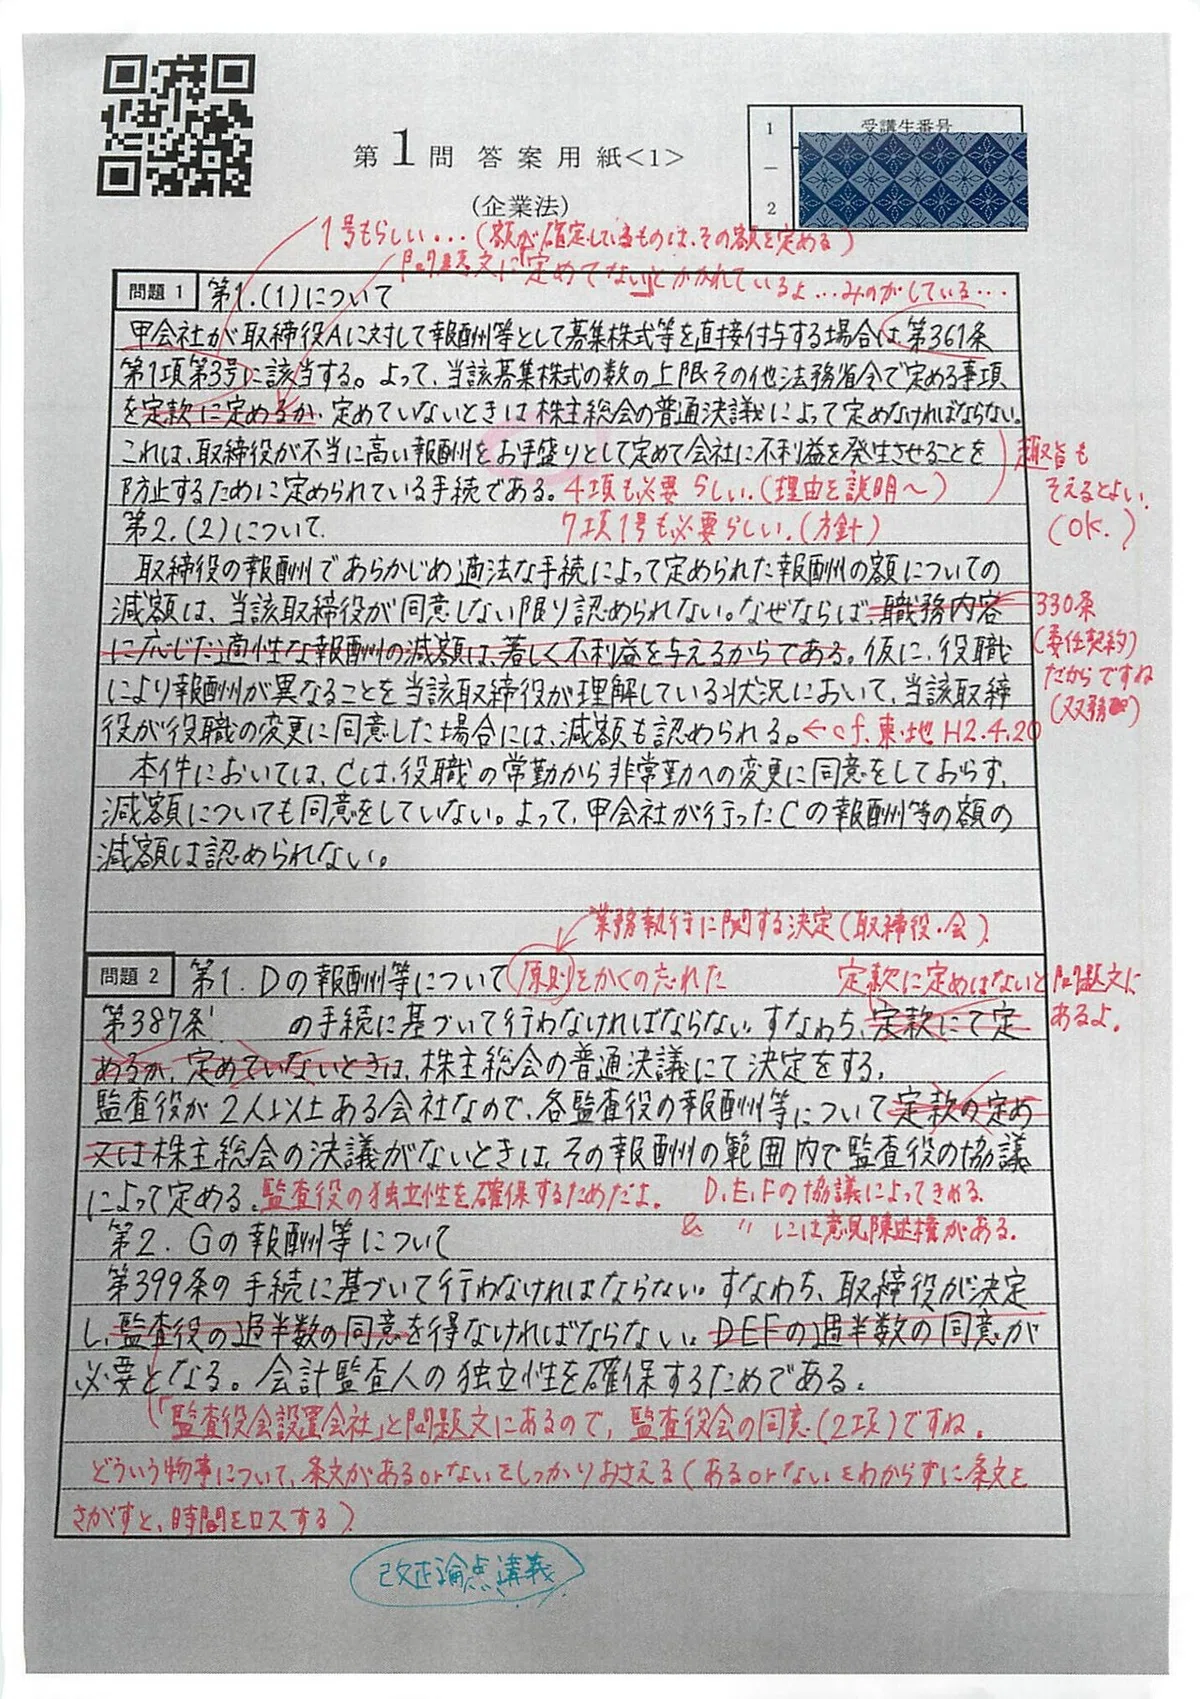 第1問 答案用紙<1>
(企業法)
1
—
2
受講生番号
1号もらしい…(額が確定しているものは、その額を定める)
問題文に「定めてない」とかかれているよ…みのがしている…
問題1 第1.(1)について
甲会社が取締役Aに対して報酬等として募集株式等を直接付与する場合は、第361条
第1項第3号に該当する。よって、当該募集株式の数の上限その他法務省令で定める事項
を定款に定めるか、定めていないときは株主総会の普通決議によって定めなければならない。
これは、取締役が不当に高い報酬をお手盛りとして定めて会社に不利益を発生させることを
防止するために定められている手続である。4項も必要らしい。(理由を説明〜)
趣旨も
そえるとよい。
(OK.)
第2.(2)について 7項1号も必要らしい。(方針)
取締役の報酬であらかじめ適法な手続によって定められた報酬の額についての
減額は、当該取締役が同意しない限り認められない。なぜならば、職務内容
に応じた適性な報酬の減額は、著しく不利益を与えるからである。仮に、役職
により報酬が異なることを当該取締役が理解している状況において、当該取締
役が役職の変更に同意した場合には、減額も認められる。←cf.東・地 H2.4.20
330条
(委任契約)
だからですね
(双務)
本件においては、Cは、役職の常勤から非常勤への変更に同意をしておらず、
減額についても同意をしていない。よって、甲会社が行ったCの報酬等の額の
減額は認められない。
業務執行に関する決定(取締役・会)
問題2 第1. Dの報酬等について 原則をかくの忘れた
定款に定めはないと問題文に
あるよ。
第387条 の手続に基づいて行わなければならない。すなわち、定款にて定
めるか、定めていないときは、株主総会の普通決議にて決定をする。
監査役が2人以上ある会社なので、各監査役の報酬等について定款の定め
又は株主総会の決議がないときは、その報酬の範囲内で監査役の協議
によって定める。監査役の独立性を確保するためだよ。 D.E.Fの協議によってきめる
& 〃 には意見陳述権がある。
第2. Gの報酬等について
第399条の手続に基づいて行わなければならない。すなわち、取締役が決定
し、監査役の過半数の同意を得なければならない。DEFの過半数の同意が
必要となる。会計監査人の独立性を確保するためである。
「監査役会設置会社」と問題文にあるので、監査役会の同意(2項)ですね。
どういう物事について、条文があるorないをしっかりおさえる(あるorないをわからずに条文を
さがすと、時間をロスする)
改正論点講義